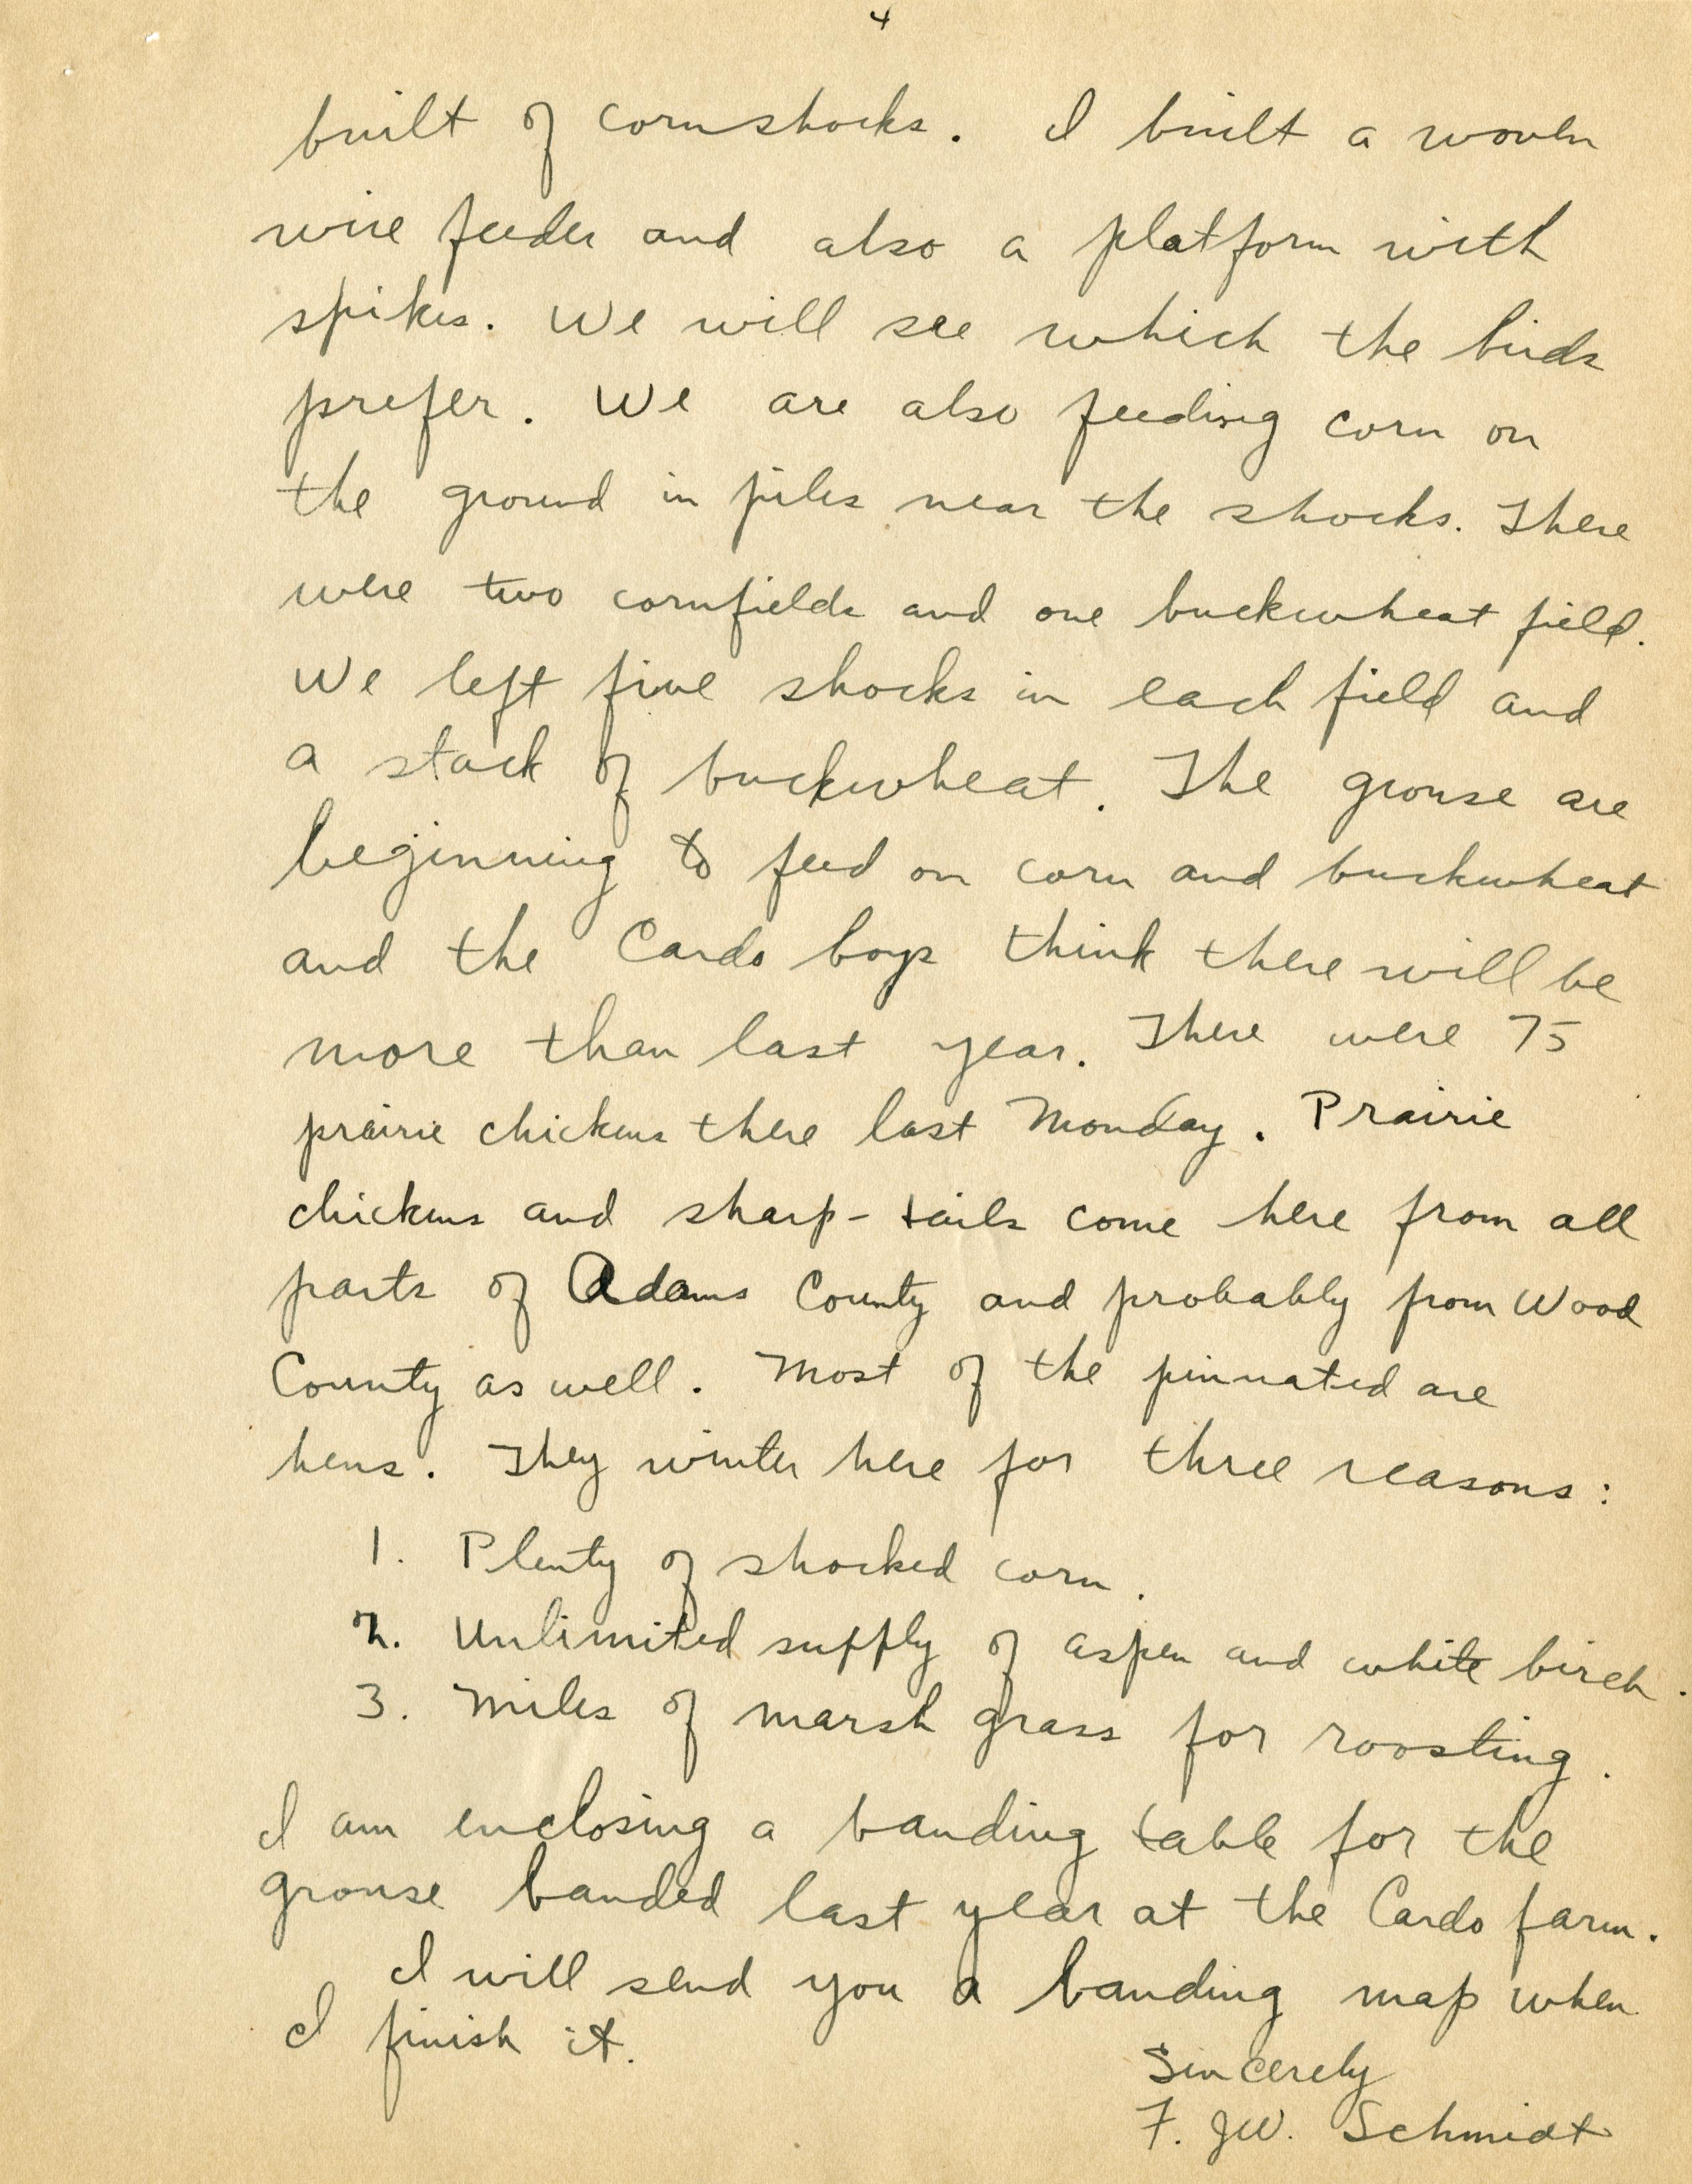 4
built of cornshocks. I built a woven
wire feeder and also a platform with
spikes. We will see which the birds
prefer. We are also feeding corn on
the ground in piles near the shocks. There
were two cornfields and one buckwheat field.
We left five shocks in each field and
a stack of buckwheat. The grouse are
beginning to feed on corn and buckwheat
and the Cardo boys think there will be
more than last year. There were 75
prairie chickens there last Monday. Prairie
chickens and sharp-tails come here from all
parts of Adams County and probably from Wood
County as well. Most of the pinnated are
hens. They winter here for three reasons:
1. Plenty of shocked corn.
2. Unlimited supply of aspen and white birch.
3. Miles of marsh grass for roosting.
I am enclosing a banding table for the
grouse banded last year at the Cardo farm.
I will send you a banding map when
I finish it.
Sincerely
F. J.W. Schmidt